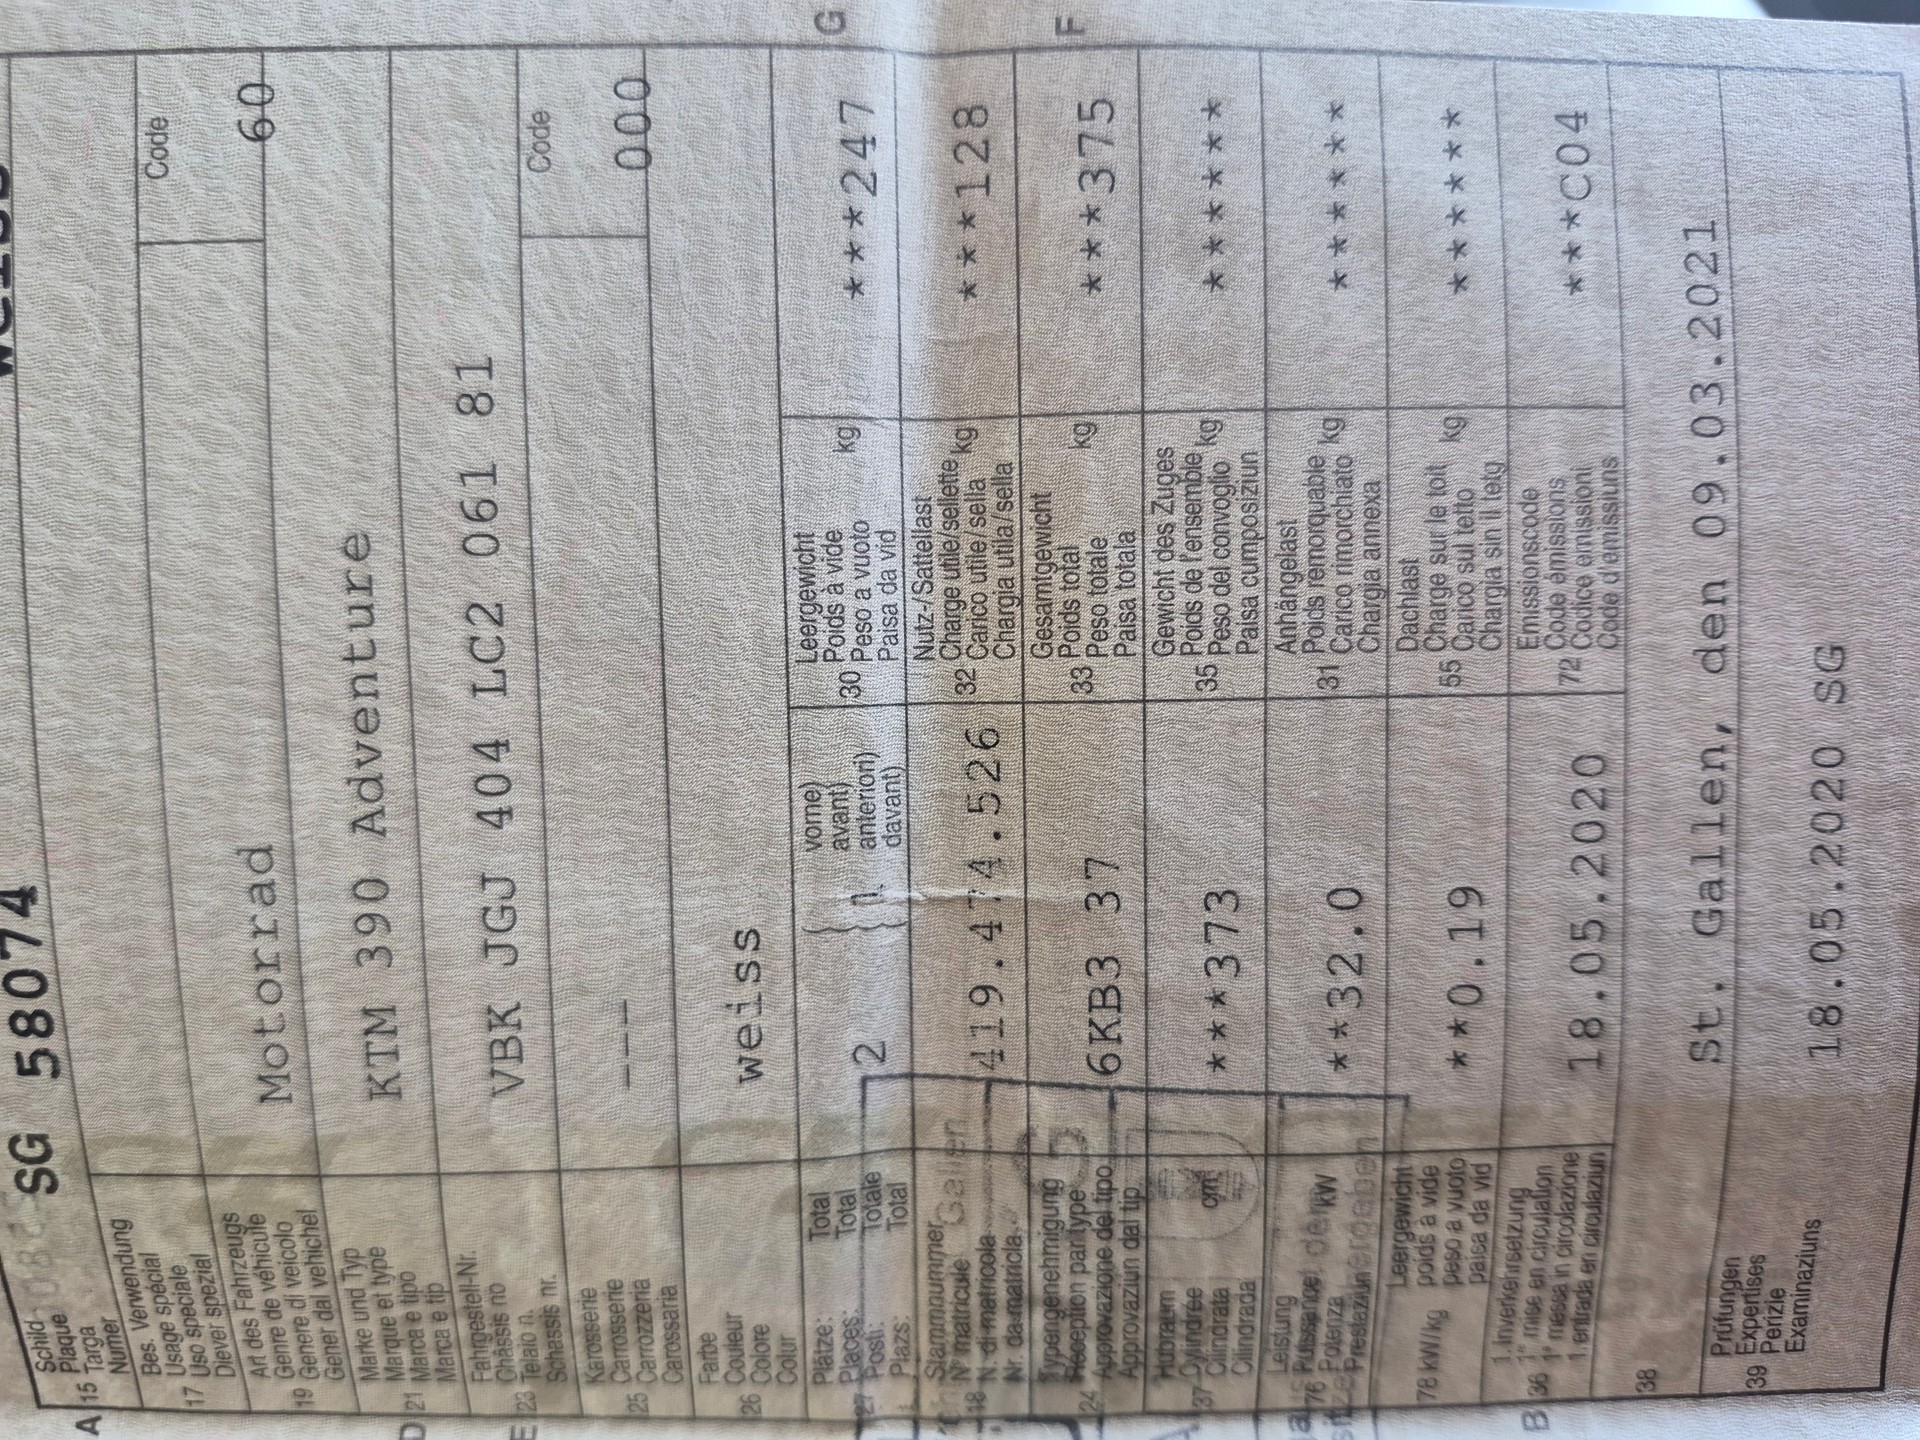 A
15
Schild
Plaque
Targa
Numer
SG 58074
17
Bes. Verwendung
Usage spécial
Uso speciale
Diever spezial
Code
19
Art des Fahrzeugs
Genre de véhicule
Genere di veicolo
Gener dal vehichel
Motorrad
60
D
21
Marke und Typ
Marque et type
Marca e tipo
Marca e tip
KTM 390 Adventure
E
23
Fahrgestell-Nr.
Châssis no
Telaio n.
Schassis nr.
VBK JGJ 404 LC2 061 81
Code
25
Karosserie
Carrosserie
Carrozzeria
Carossaria
---
000
26
Farbe
Couleur
Colore
Colur
weiss
27
Plätze: Total
Places: Total
Posti: Totale
Plazs: Total
2
vorne)
avant)
anteriori)
davant)
1
30
Leergewicht
Poids à vide
Peso a vuoto
Paisa da vid
kg
***247
G
18
Stammnummer
N° matricule
N. di matricola
Nr. da matricla
419.474.526
32
Nutz-/Sattellast
Charge utile/sellette
Carico utile/sella
Chargia utila/sella
kg
***128
24
Typengenehmigung
Réception par type
Approvazione del tipo
Approvaziun dal tip
6KB3 37
33
Gesamtgewicht
Poids total
Peso totale
Paisa totala
kg
***375
F
37
Hubraum
Cylindrée
Cilindrata
Cilindrada
cm³
***373
35
Gewicht des Zuges
Poids de l'ensemble
Peso del convoglio
Paisa cumposiziun
kg
******
76
Leistung
Puissance
Potenza
Prestaziun
kW
**32.0
31
Anhängelast
Poids remorquable
Carico rimorchiato
Chargia annexa
kg
******
78 kW/kg
Leergewicht
poids à vide
peso a vuoto
paisa da vid
**0.19
55
Dachlast
Charge sur le toit
Carico sul tetto
Chargia sin il tetg
kg
******
B
36
1. Inverkehrsetzung
1re mise en circulation
1a messa in circolazione
1. entrada en circulaziun
18.05.2020
72
Emissionscode
Code émissions
Codice emissioni
Code d'emissiuns
***C04
38
St. Gallen, den 09.03.2021
39
Prüfungen
Expertises
Perizie
Examinaziuns
18.05.2020 SG